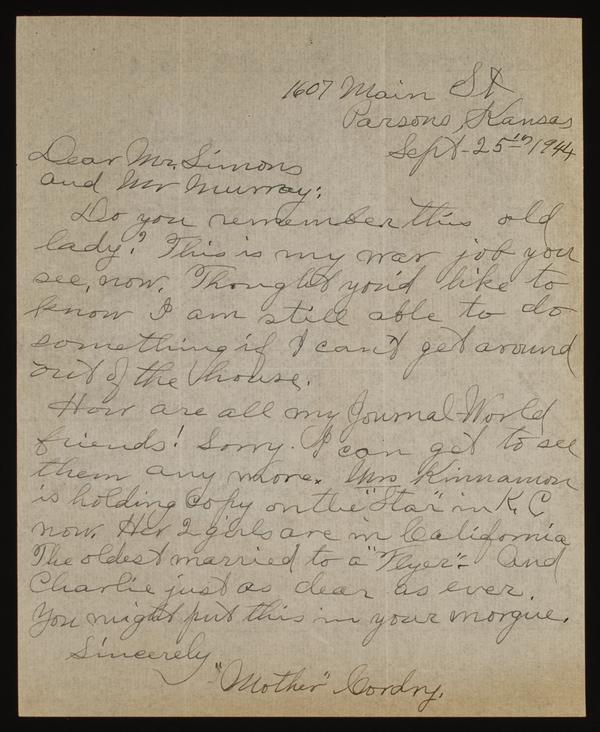 1607 Main St
Parsons, Kansas
Sept-25th/1944
Dear Mr. Simons
and Mr Murray:
Do you remember this old
lady? This is my war job you
see, now. Thought you'd like to
know I am still able to do
something if I can't get around
out of the house.
How are all my Journal-World
friends! Sorry I can get to see
them any more. Mrs Kinnamon
is holding copy on the "Star" in K.C
now. Her 2 girls are in California
The oldest married to a "Flyer". And
Charlie just as dear as ever.
You might put this in your morgue.
Sincerely
"Mother" Cordry.